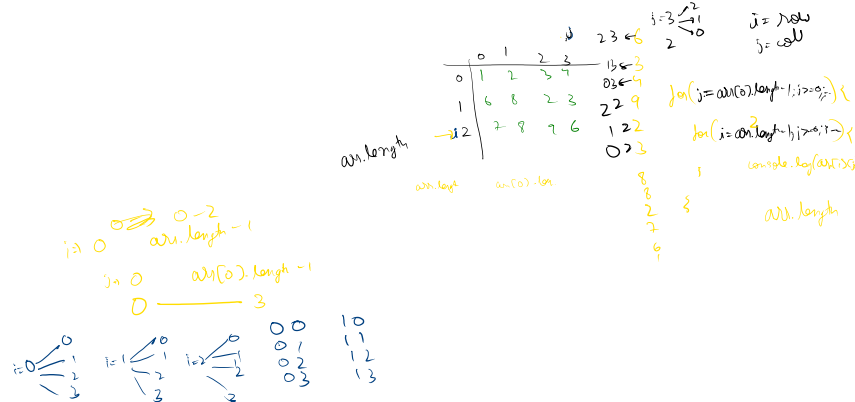 j=3 2
1
0
2
i= row
j= col
2 3 ← 6
13 ← 3
03 ← 4
2 2 9
1 2 2
0 2 3
8
8
2
7
6
1
0 1 2 3
0 1 2 3 4
1 6 8 2 3
i 2 7 8 9 6
arr.length
for( j=arr[0].length-1; j>=0; j--) {
2
for( i=arr.length-1; i>=0; i--) {
console.log(arr[i][j
}
}
arr.length
0 → 0-2
i=0 arr.length-1
j=0 arr[0].length-1
0 — 3
i=0 0
1
2
3
i=1 0
1
2
3
i=2 0
1
2
3
0 0 1 0
0 1 1 1
0 2 1 2
0 3 1 3